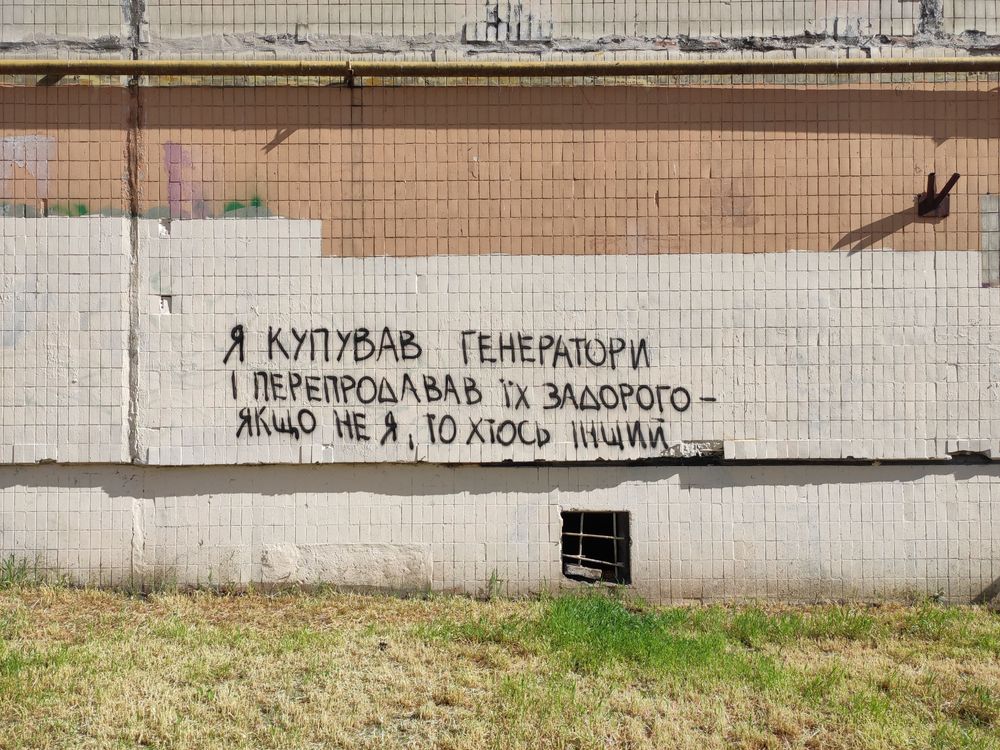 Я КУПУВАВ ГЕНЕРАТОРИ
І ПЕРЕПРОДАВАВ ЇХ ЗАДОРОГО –
ЯКЩО НЕ Я, ТО ХТОСЬ ІНЩИЙ